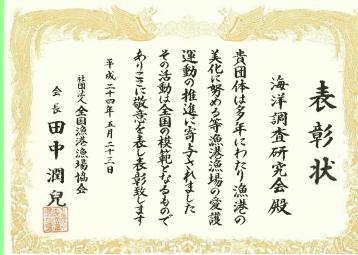 表彰状
海洋調査研究会殿
貴団体は多年にわたり漁港の
美化に努める等漁港漁場の愛護
運動の推進に寄与されました
その活動は全国の模範となるもので
ありここに敬意を表し表彰致します
平成二十四年五月二十三日
社団法人全国漁港漁場協会
会長田中潤兒